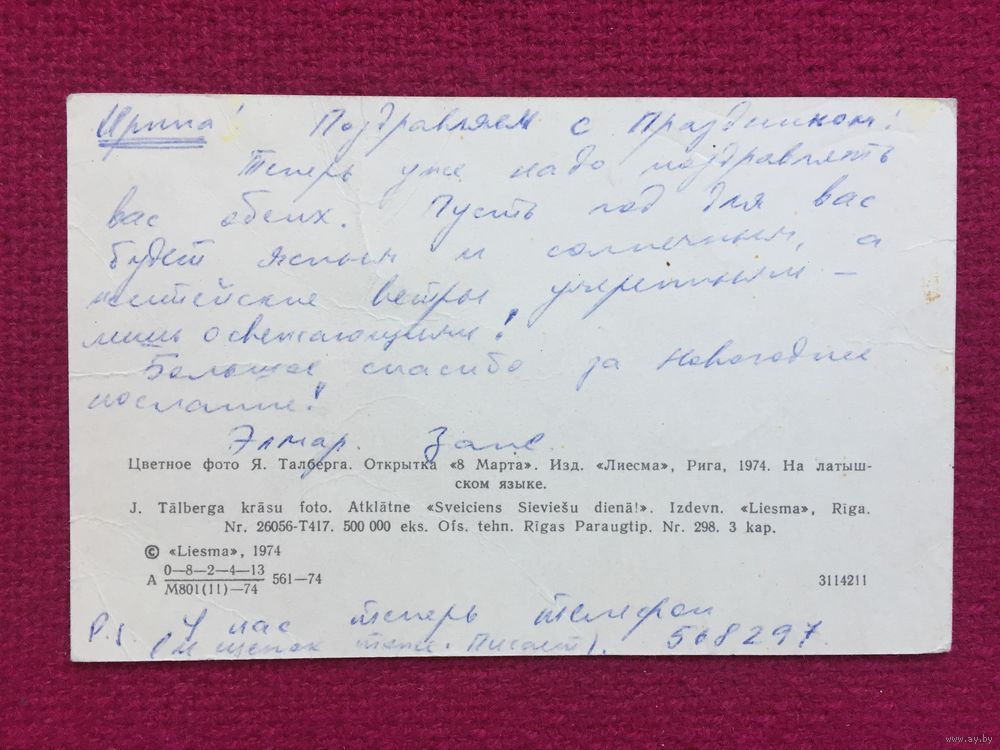 Ирина! Поздравляем с Праздником!
Теперь уже надо поздравлять
вас обеих. Пусть год для вас
будет ясным и солнечным, а
житейские ветры умеренными –
лишь освежающими!
Большое спасибо за Новогоднее
послание!
Элмар.
Цветное фото Я. Талберга. Открытка «8 Марта». Изд. «Лиесма», Рига, 1974. На латыш-
ском языке.
J. Tālberga krāsu foto. Atklātne «Sveiciens Sieviešu dienā!». Izdevn. «Liesma», Rīga.
Nr. 26056-T417. 500 000 eks. Ofs. tehn. Rīgas Paraugtip. Nr. 298. 3 kap.
© «Liesma», 1974
А 0—8—2—4—13 561—74
М801(11)—74
3114211
P.S У нас теперь телефон
(и щенок тоже. Писает). 568297
www.ay.by